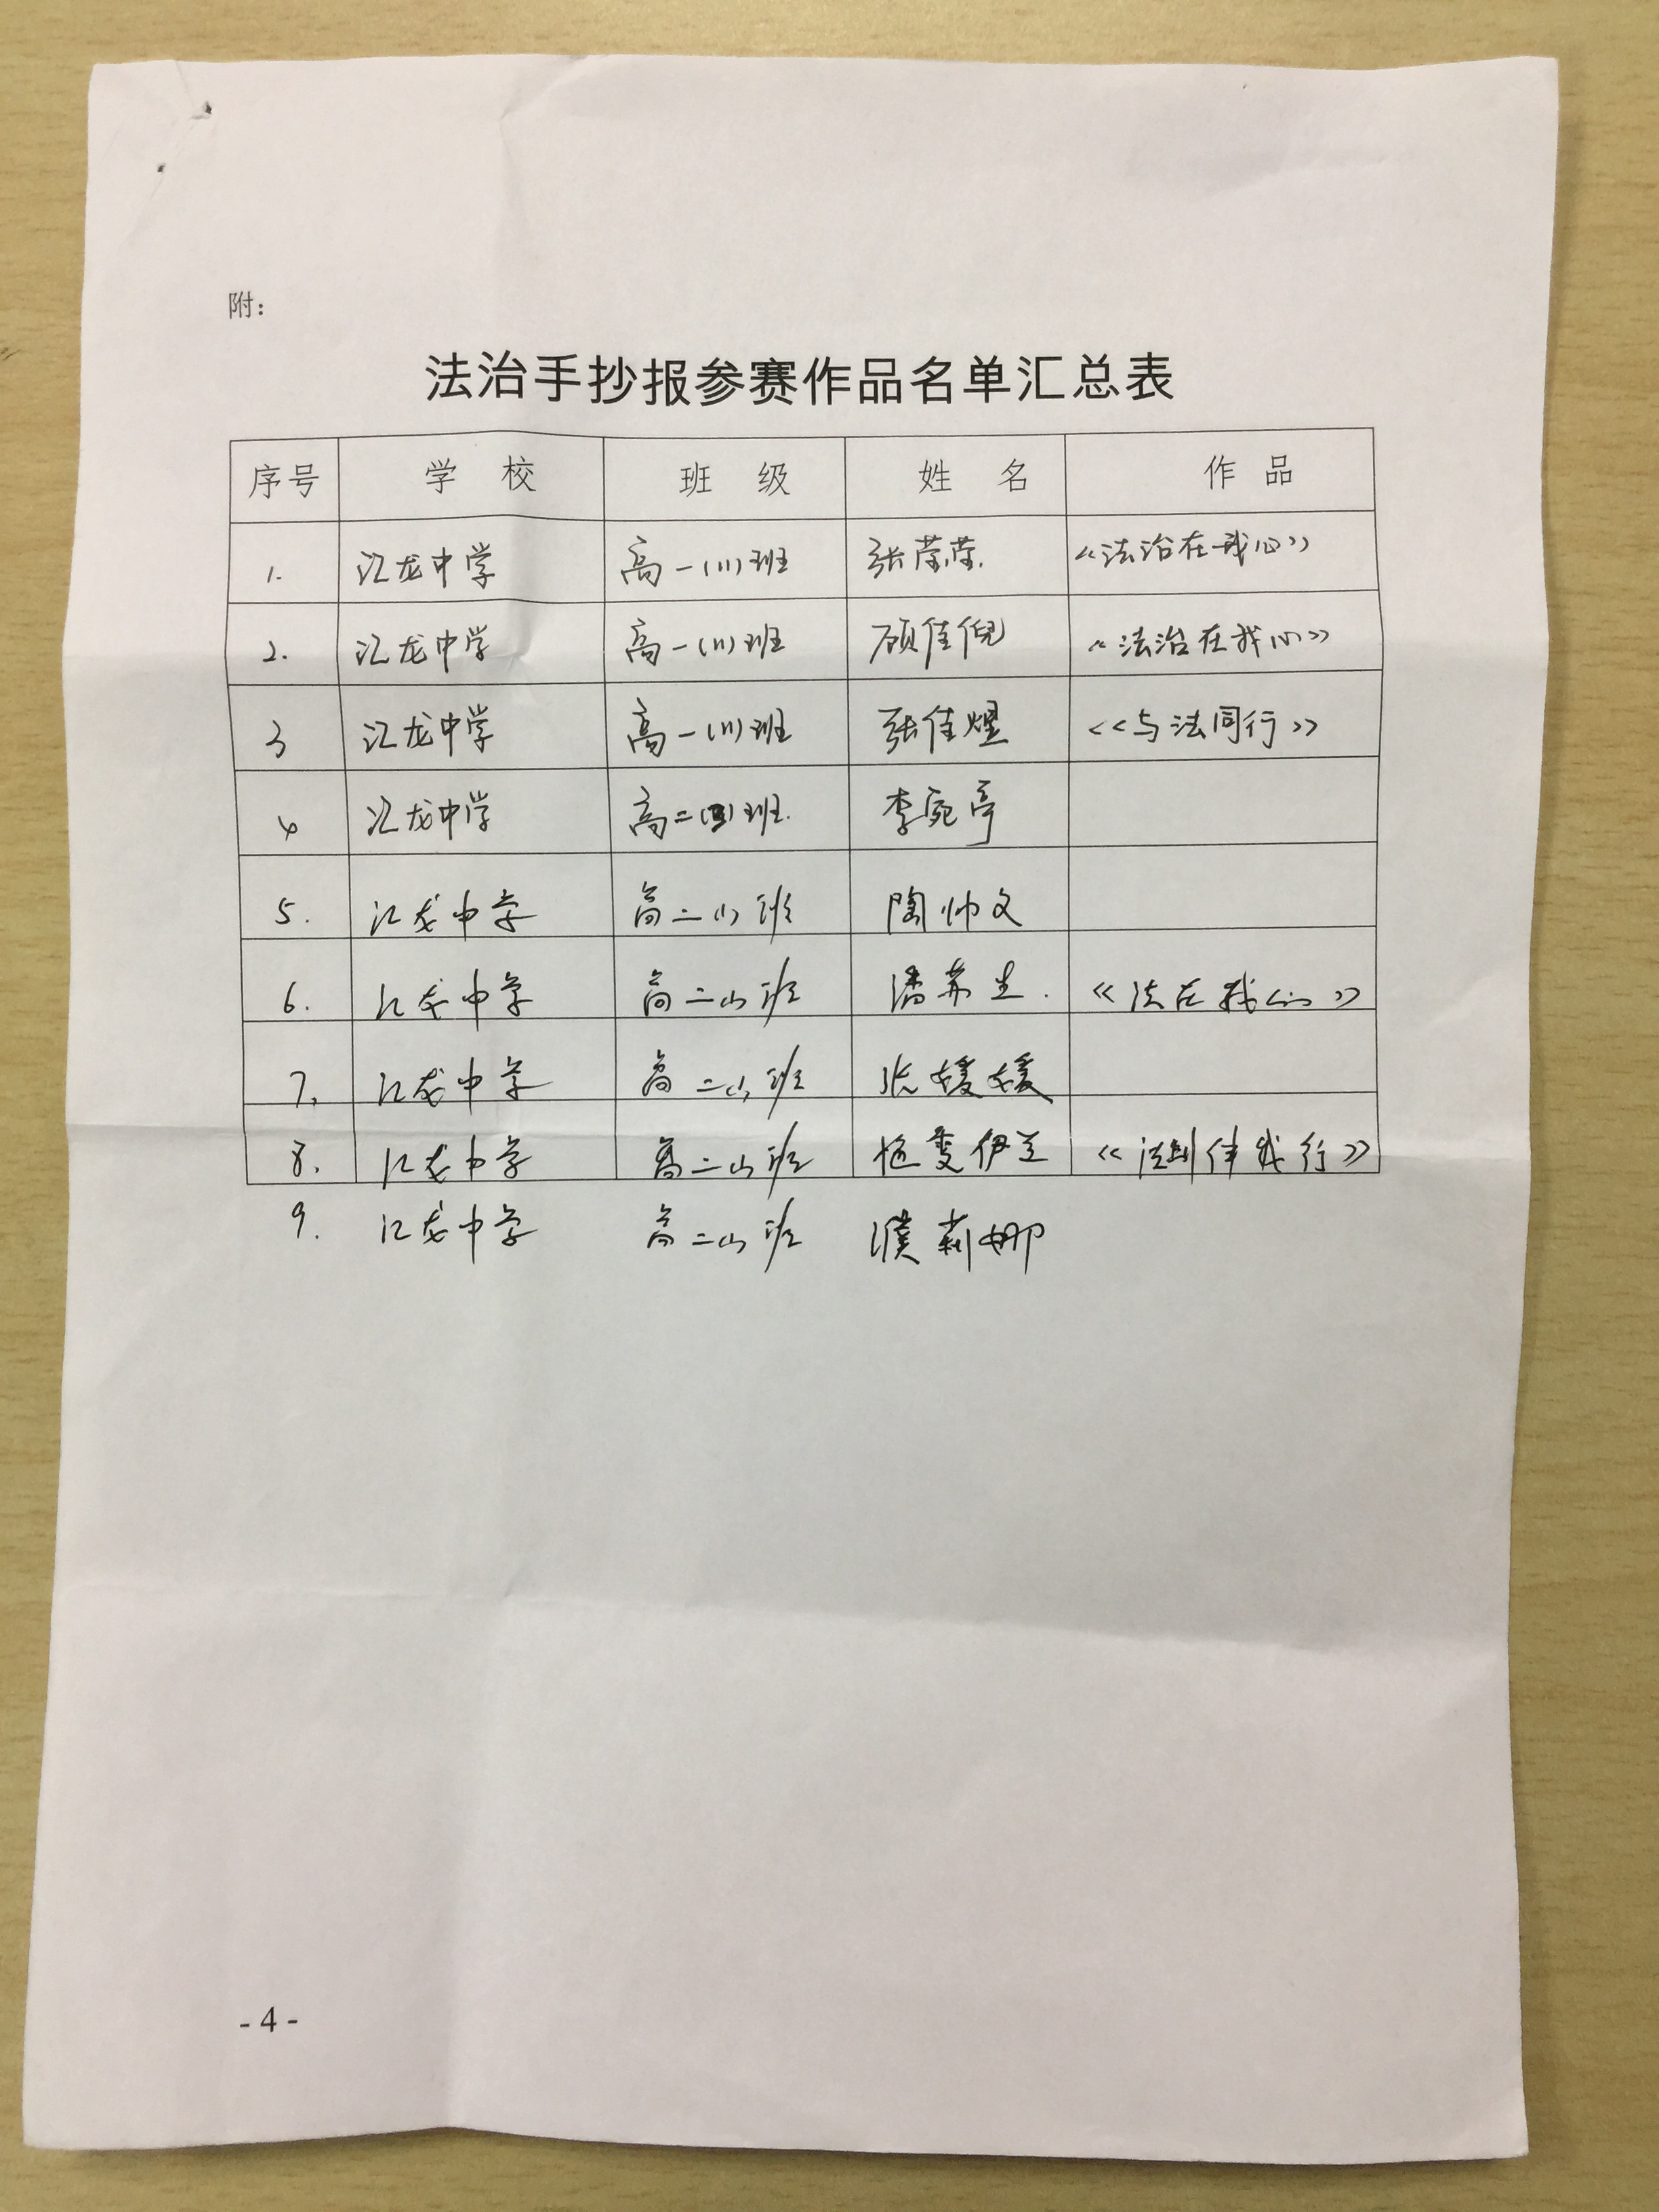 附：
法治手抄报参赛作品名单汇总表
序号 学 校 班 级 姓 名 作 品
1. 汇龙中学 高一(11)班 张莹莹. 《法治在我心》
2. 汇龙中学 高一(11)班 顾佳倪 《法治在我心》
3 汇龙中学 高一(11)班 张佳煜 <<与法同行>>
4 汇龙中学 高二班. 李宛亭
5. 汇龙中学 高二(1)班 陶帅文
6. 汇龙中学 高二(1)班 潘苏 . 《法在我心》
7. 汇龙中学 高二(1)班 张媛媛
8. 汇龙中学 高二(1)班 伊兰 《法制伴我行》
9. 汇龙中学 高二(1)班 濮莉娜
- 4 -